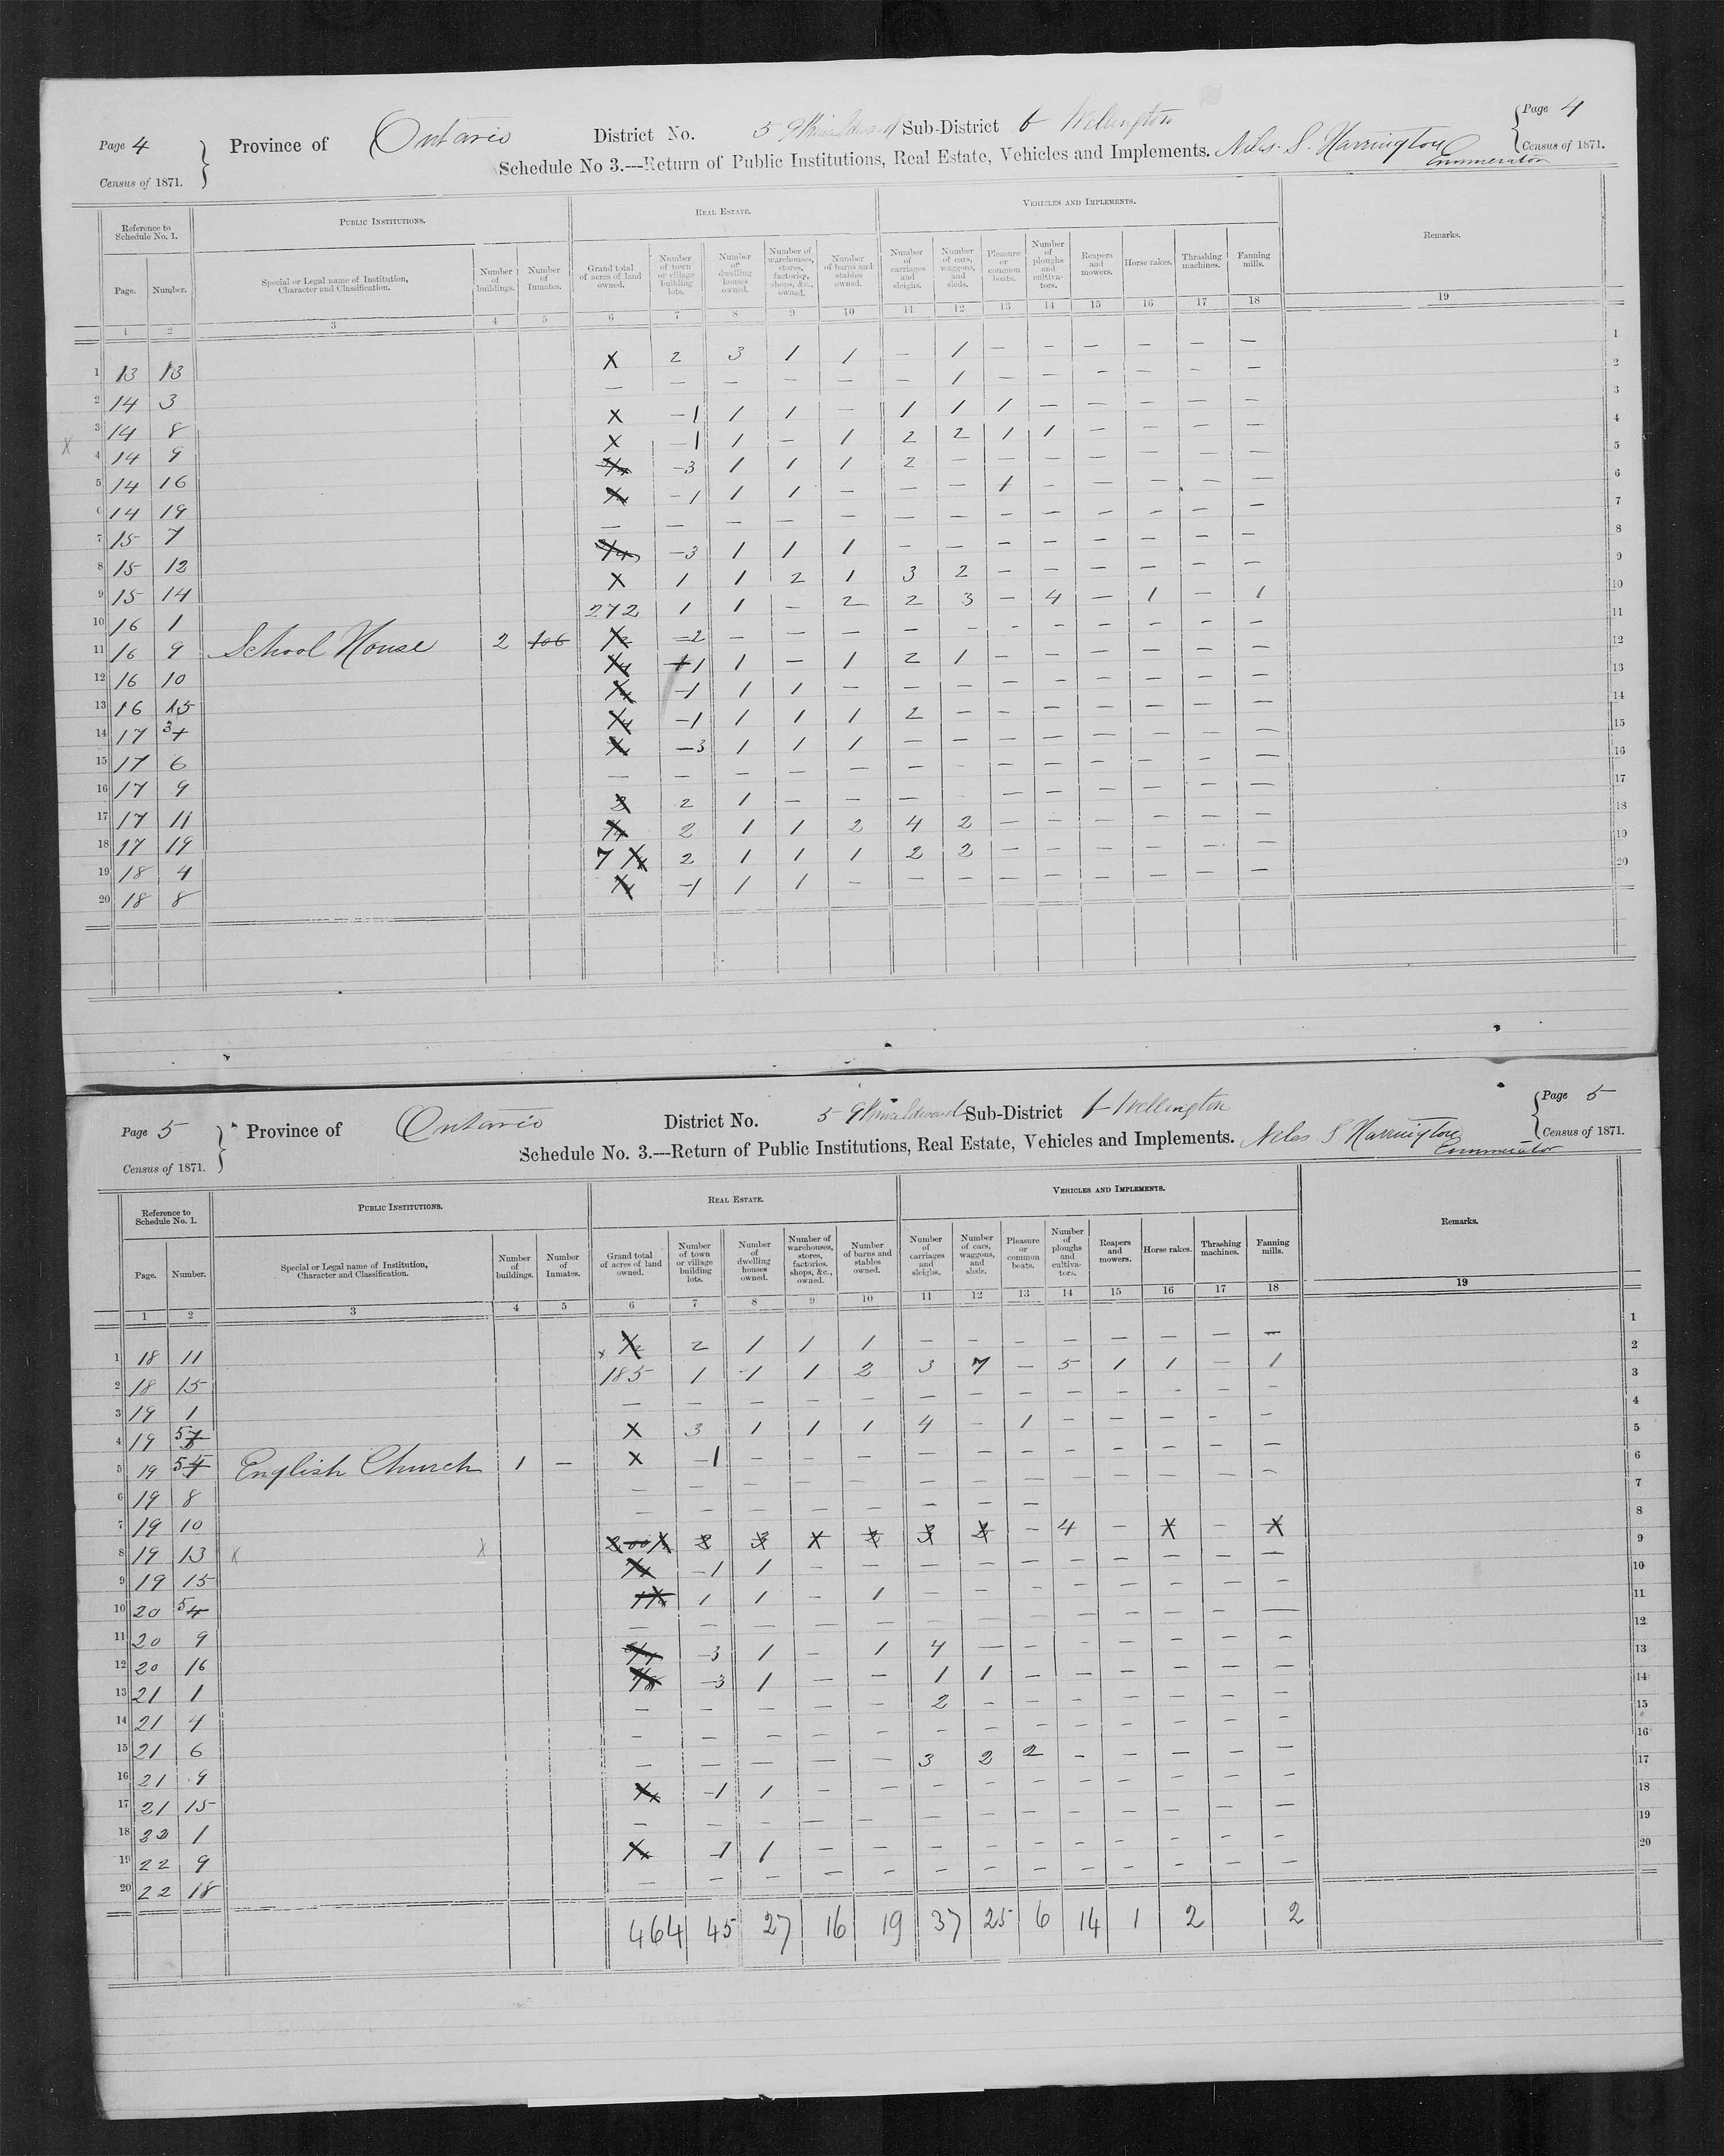 Page 4 Province of Ontario District No. 5 Sub-District b Wellington Page 4
Census of 1871. Schedule No 3.---Return of Public Institutions, Real Estate, Vehicles and Implements. Niles S. Harrington Enumerator Census of 1871.
Reference to Schedule No. 1. PUBLIC INSTITUTIONS. REAL ESTATE. VEHICLES AND IMPLEMENTS. Remarks.
Page. Number. Special or Legal name of Institution, Character and Classification. Number of buildings. Number of Inmates. Grand total of acres of land owned. Number of town or village building lots. Number of dwelling houses owned. Number of warehouses, stores, factories, shops, &c., owned. Number of barns and stables owned. Number of carriages and sleighs. Number of cars, waggons, and sleds. Pleasure or common boats. Number of ploughs and cultivators. Reapers and mowers. Horse rakes. Thrashing machines. Fanning mills.
1 2 3 4 5 6 7 8 9 10 11 12 13 14 15 16 17 18 19
1 13 13 X 2 3 1 1 — 1 — — — — — — 1
2 14 3 — — — — — — 1 — — — — — — 2
3 14 8 X —1 1 1 — 1 1 1 — — — — — 3
4 14 9 X —1 1 — 1 2 2 1 1 — — — — 4
5 14 16 —3 1 1 1 2 — — — — — — — 5
6 14 19 —1 1 1 — — — 1 — — — — — 6
7 15 7 — — — — — — — — — — — — — 7
8 15 12 —3 1 1 1 — — — — — — — — 8
9 15 14 X 1 1 2 1 3 2 — — — — — — 9
10 16 1 272 1 1 — 2 2 3 — 4 — 1 — 1 10
11 16 9 School House 2 106 =2 — — — — — — — — — — — 11
12 16 10 1 1 — 1 2 1 — — — — — — 12
13 16 15 —1 1 1 — — — — — — — — — 13
14 17 3 —1 1 1 1 2 — — — — — — — 14
15 17 6 —3 1 1 1 — — — — — — — — 15
16 17 9 — — — — — — — — — — — — — 16
17 17 11 2 1 — — — — — — — — — — 17
18 17 19 2 1 1 2 4 2 — — — — — — 18
19 18 4 7 2 1 1 1 2 2 — — — — — — 19
20 18 8 —1 1 1 — — — — — — — — — 20
Page 5 Province of Ontario District No. 5 Sub-District b Wellington Page 5
Census of 1871. Schedule No. 3.—Return of Public Institutions, Real Estate, Vehicles and Implements. Niles S. Harrington Enumerator Census of 1871.
Reference to Schedule No. 1. PUBLIC INSTITUTIONS. REAL ESTATE. VEHICLES AND IMPLEMENTS. Remarks.
Page. Number. Special or Legal name of Institution, Character and Classification. Number of buildings. Number of Inmates. Grand total of acres of land owned. Number of town or village building lots. Number of dwelling houses owned. Number of warehouses, stores, factories, shops, &c., owned. Number of barns and stables owned. Number of carriages and sleighs. Number of cars, waggons, and sleds. Pleasure or common boats. Number of ploughs and cultivators. Reapers and mowers. Horse rakes. Thrashing machines. Fanning mills.
1 2 3 4 5 6 7 8 9 10 11 12 13 14 15 16 17 18 19
1 18 11 2 1 1 1 — — — — — — — — 1
2 18 15 185 1 1 1 2 3 7 — 5 1 1 — 1 2
3 19 1 — — — — — — — — — — — — — 3
4 19 5 X 3 1 1 1 4 — 1 — — — — — 4
5 19 5 English Church 1 — X —1 — — — — — — — — — — — 5
6 19 8 — — — — — — — — — — — — — 6
7 19 10 — — — — — — — — 7
8 19 13 — 4 — — 8
9 19 15 —1 1 — — — — — — — — — — 9
10 20 5 1 1 — 1 — — — — — — — — 10
11 20 9 — — — — — — — — — — — — — 11
12 20 16 —3 1 — 1 4 — — — — — — — 12
13 21 1 —3 1 — — 1 1 — — — — — — 13
14 21 4 — — — — — 2 — — — — — — — 14
15 21 6 — — — — — — — — — — — — — 15
16 21 9 — — — — — 3 2 2 — — — — — 16
17 21 15 —1 1 — — — — — — — — — — 17
18 22 1 — — — — — — — — — — — — — 18
19 22 9 —1 1 — — — — — — — — — — 19
20 22 18 — — — — — — — — — — — — — 20
464 45 27 16 19 37 25 6 14 1 2 2